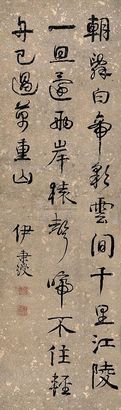 朝辭白帝彩雲間千里江陵
一日還兩岸猿聲啼不住輕
舟已過萬重山
伊秉綬